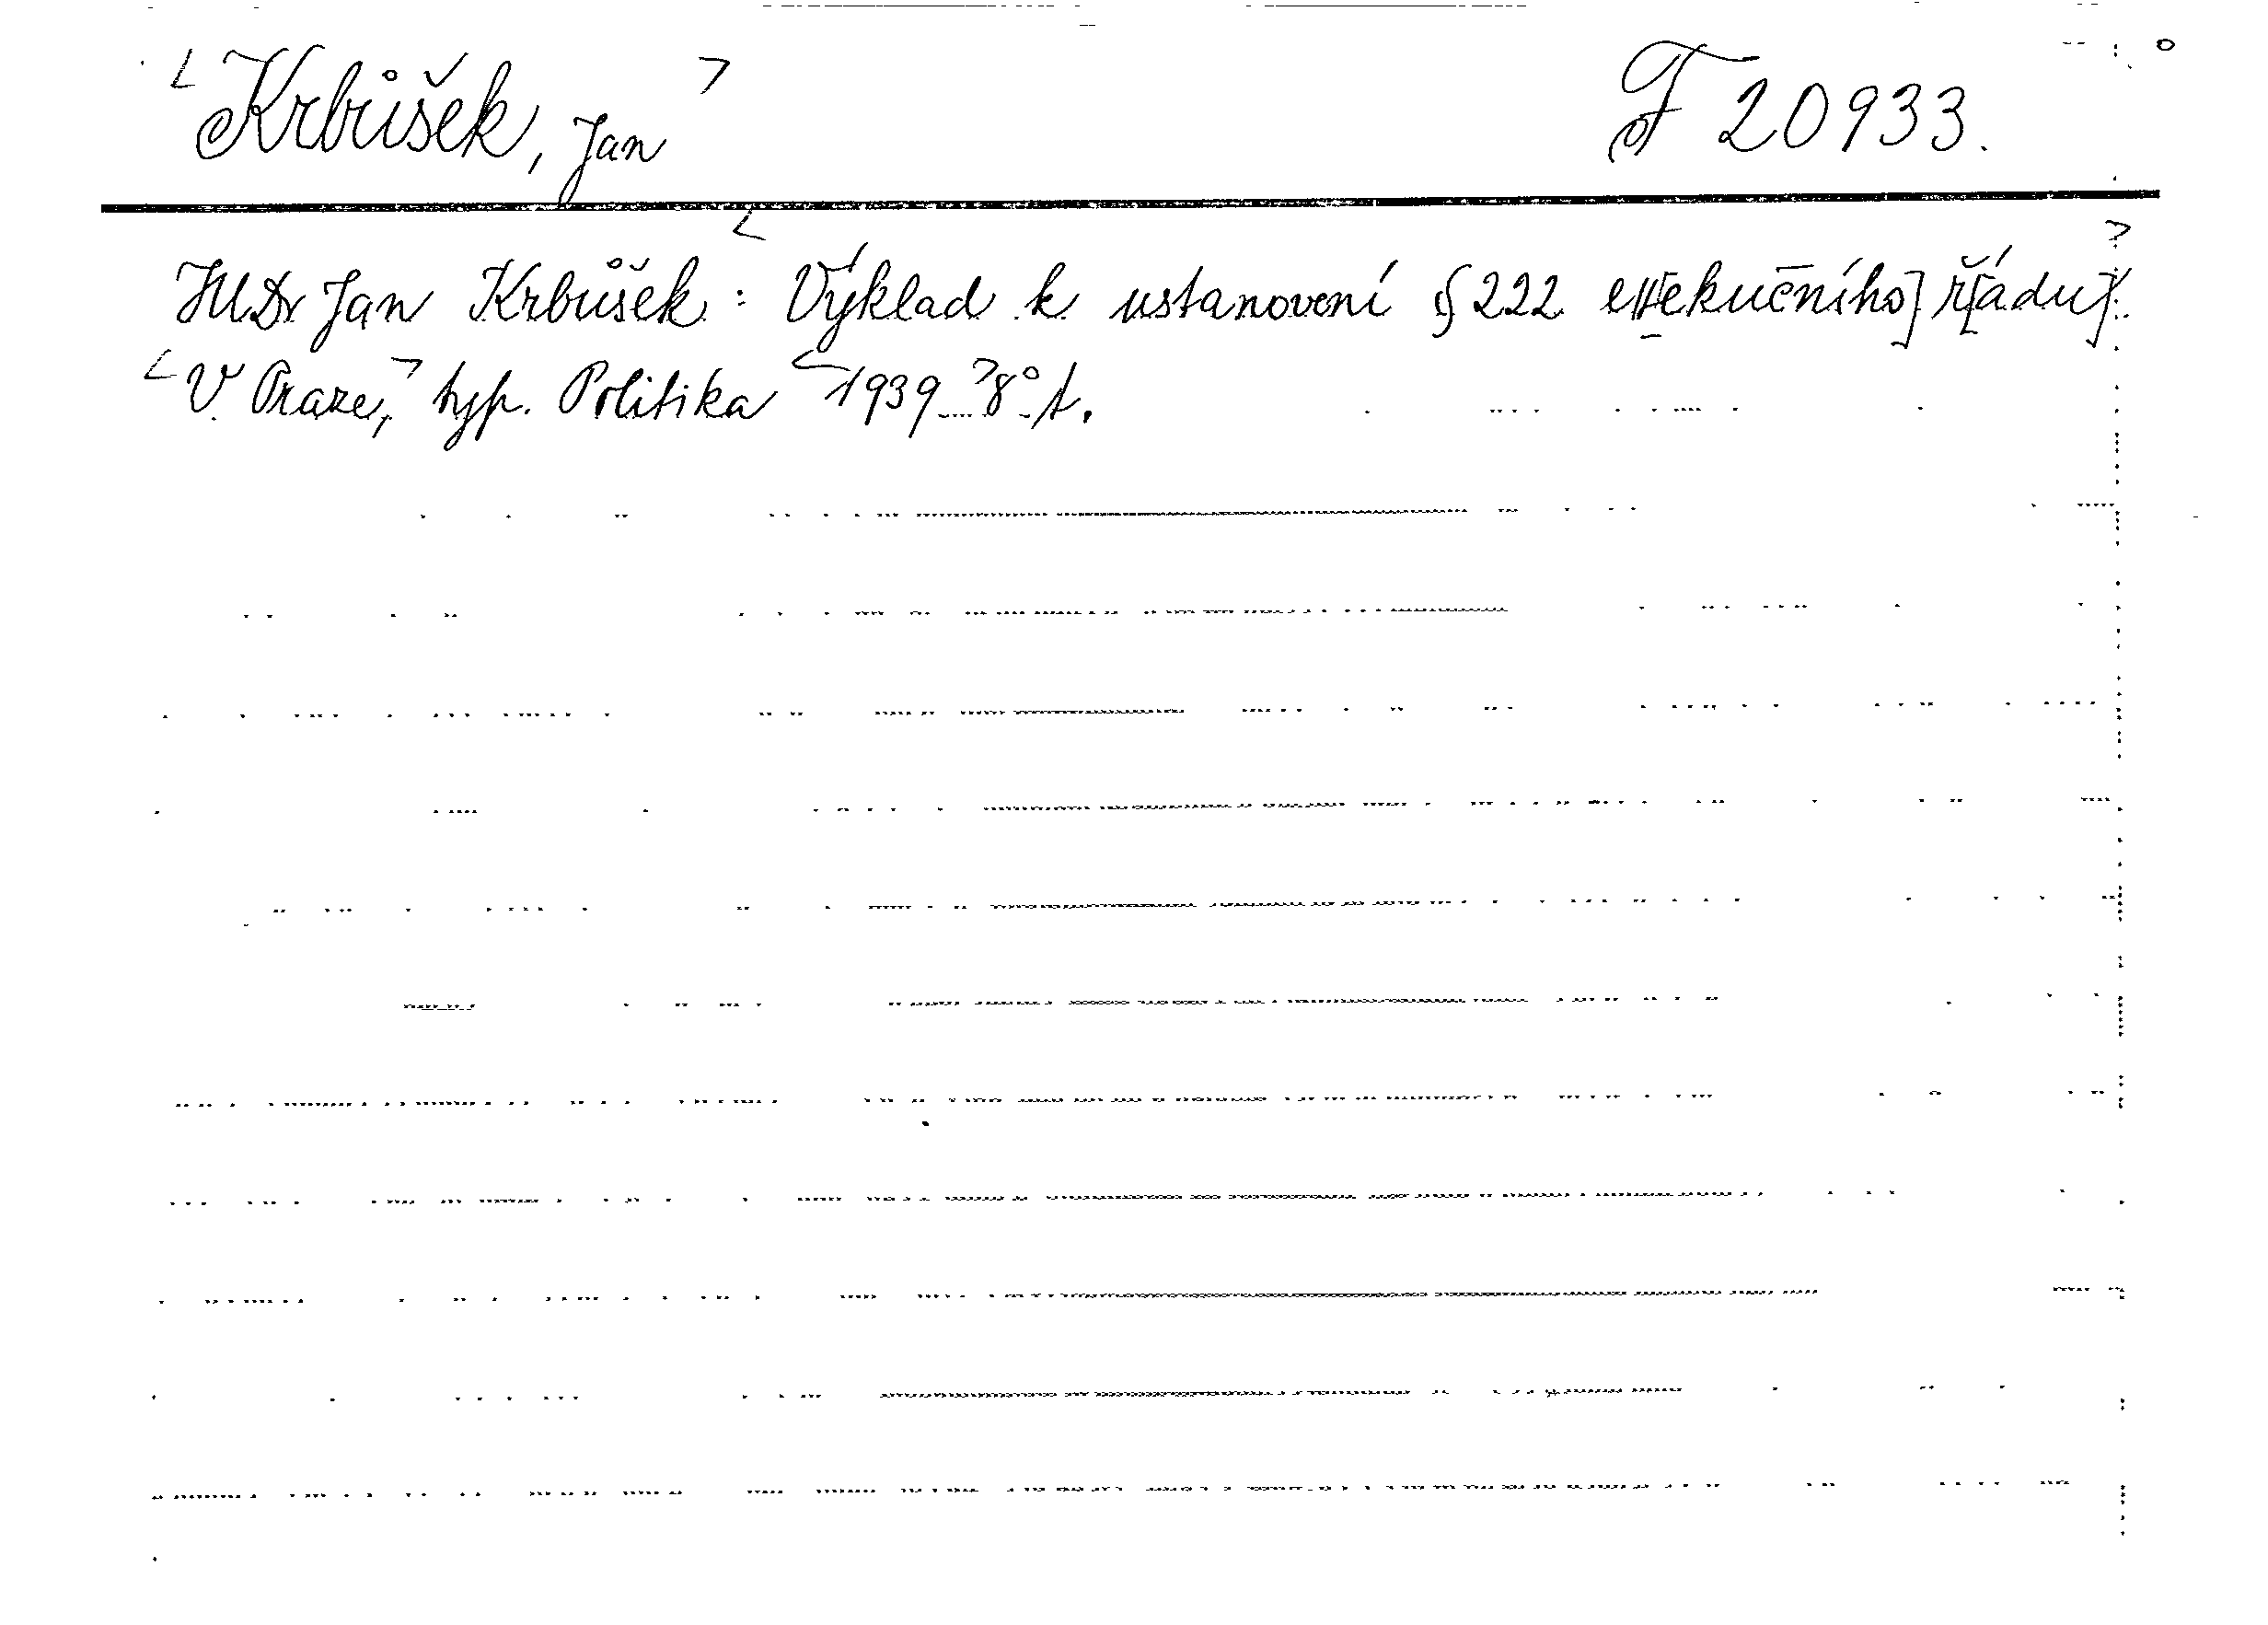 Krbůšek, Jan F 20933.
JUDr Jan Krbůšek: Výklad k ustanovení § 222 e[xekučního] ř[ádu].
V Praze, typ. Politika 1939 8° t.